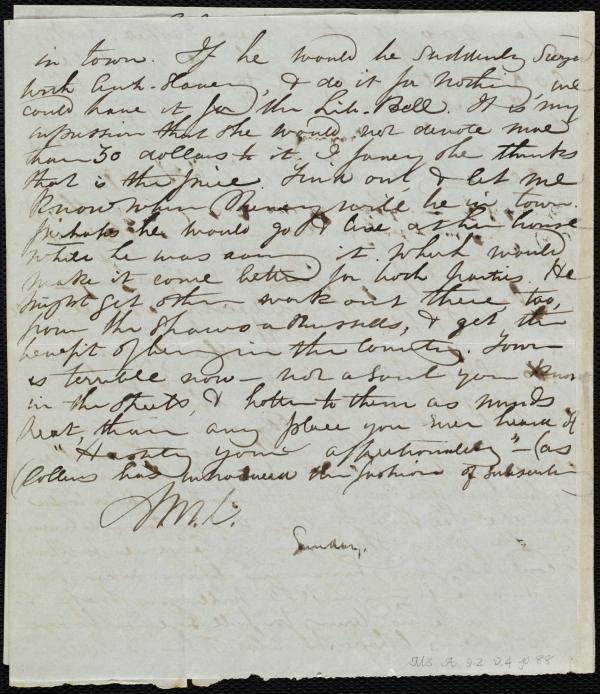 in town. If he would be suddenly
with Anti-Slavery, & do it for nothing, we
could have it for the Lib. Bell. It is my
impression that she would not devote more
than 50 dollars to it. I fancy she thinks
that is the price. Find out, & let me
know when will be in town.
Perhaps he would go & live at her house
while he was doing it which would
make it come better for both parties. He
might get other work out there too,
from the Shaws & Russells, & get the
benefit of being in the Country. Town
is terrible now – not a soul you know
in the streets, & hotter to them as minds
heat, than any place you ever heard of
"Heartily yours affectionately" – (as
Collins has introduced the fashion of subscribin
A.W.W.
Sunday.
Ms. A. 9.2 v.4 p 88